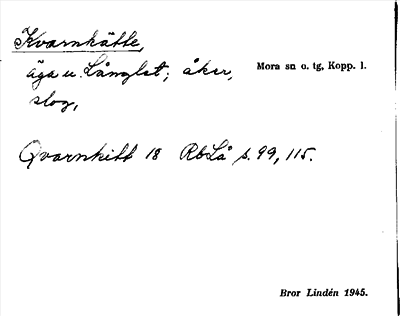 Kvarnkätte,
äga u. Långlet; åker,
slog,
Mora sn o. tg, Kopp. l.
Qvarnkitt 18 RbLå s. 99, 115.
Bror Lindén 1945.